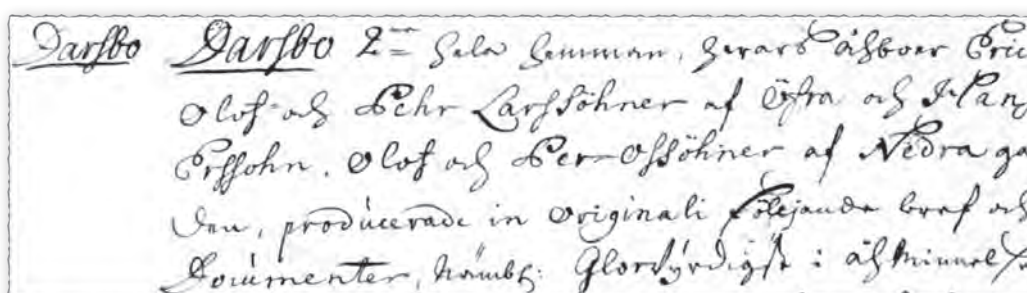 Darsbo Darsbo 2ne hela hemman, hvars åhboer Eric
Olof och Pehr Larssöhner af Öfra och Hans
ErsSohn. Olof och Per Olssöhner af Nedra gå
den, producerade in originali följande bref och
Documenter, nämbl: Glorvyrdigst i åhminnel